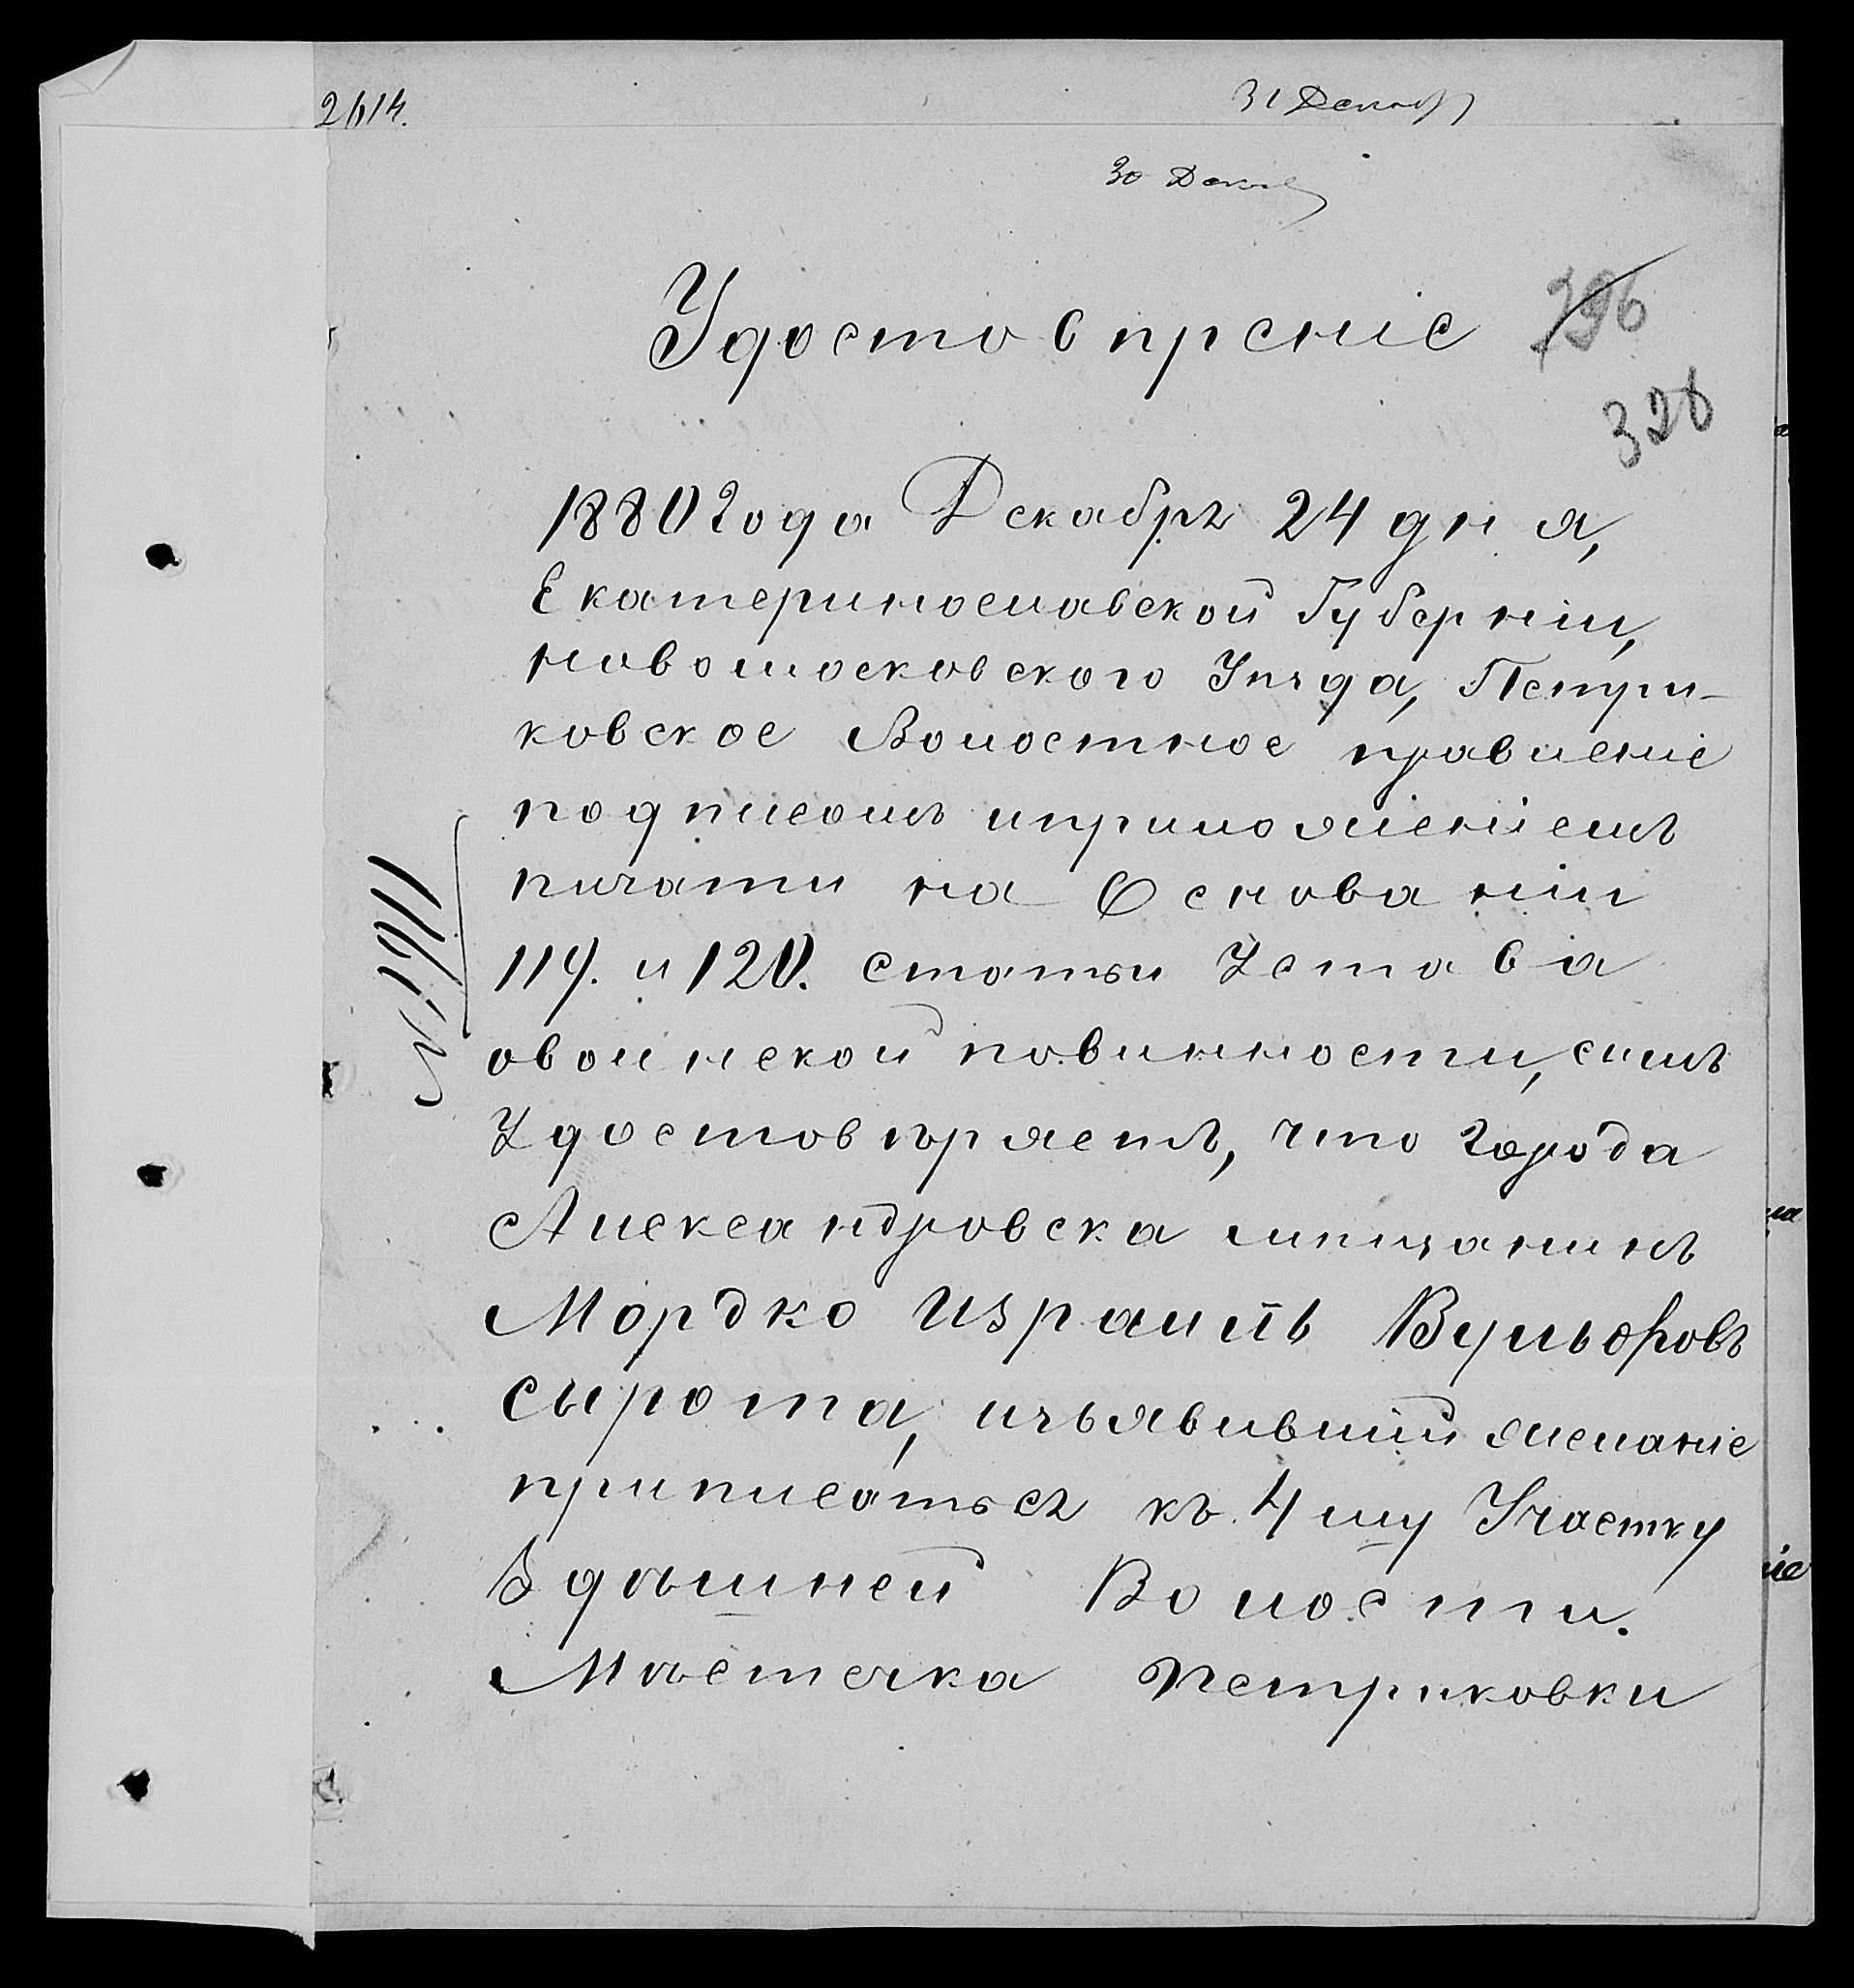 2614.
31 Декабр
30 Декаб
Удостовѣреніе
796
328
1880 Года Декабрѧ 24 дня,
Екатеринославской Губерніи,
новомосковского Уѣзда, Петри-
ковское Волостное правленіе
подписомъ иприложеніемъ
пичати на Основаніи
119. и 120. статьи Устава
овоинской повинности, симъ
Удостовѣряетъ, что города
Александровска мѣщанинъ
Мордко Израилѣв Вульфовъ
сырота, изъявившій желаніе
приписатьсѧ къ 4 му Участку
Здѣшней Волости.
Мѣстечка Петриковки
№ 1611